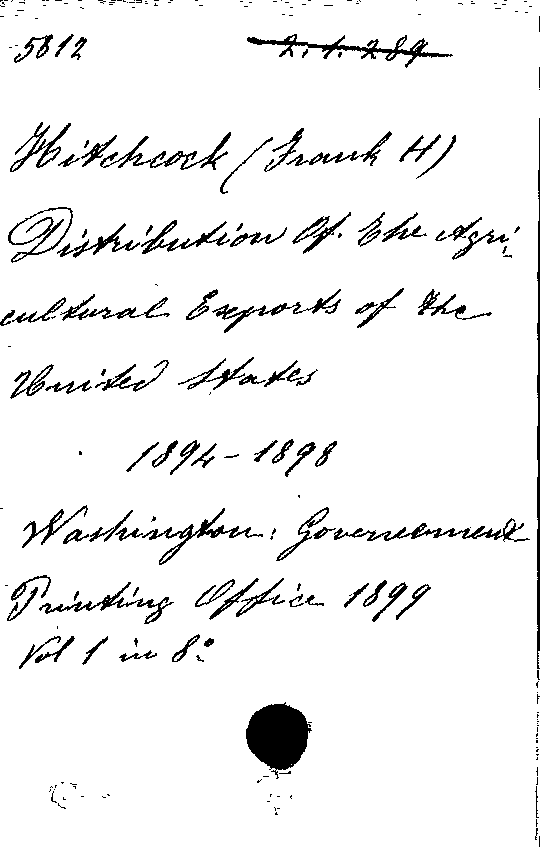 5812 2.1.289
Hitchcock (Frank H)
Distribution Of. The Agri-
cultural Exports of the
United States
1894-1898
Washington: Government
Printing Office 1899
Vol 1 in 8°